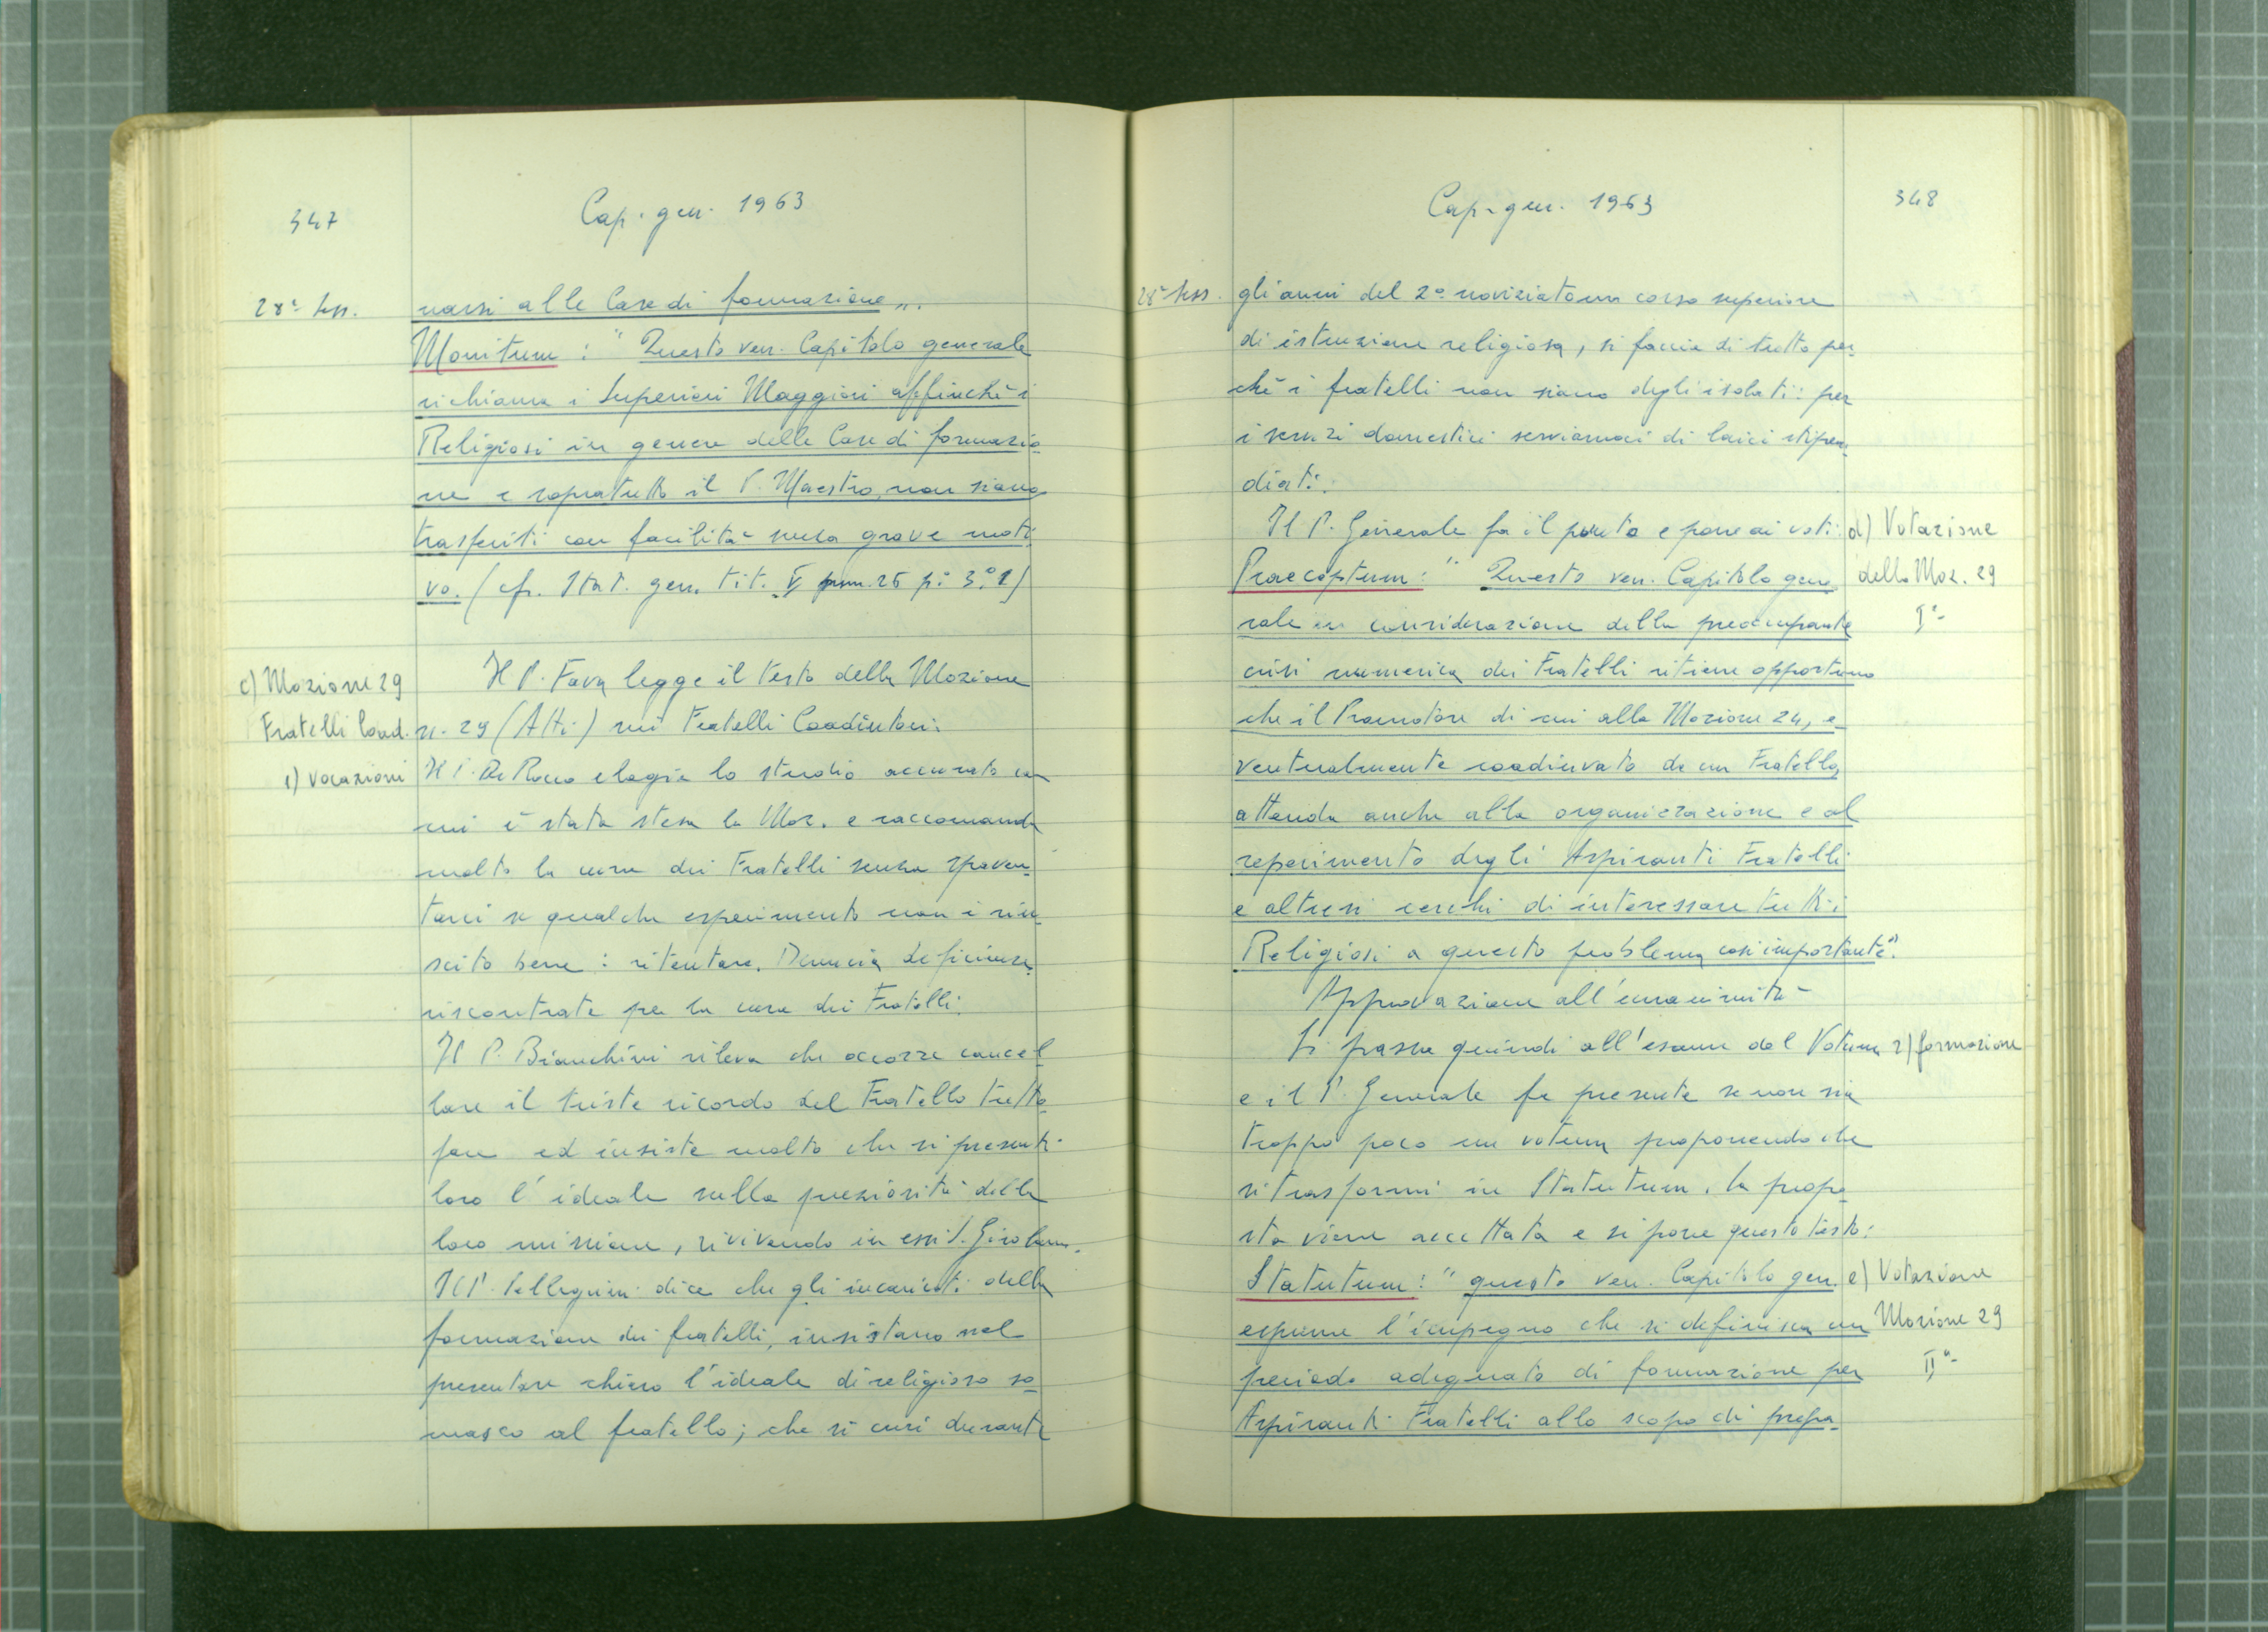 347
Cap. gen. 1963
28ª sess.
narsi alle Case di formazione".
Monitum : " Questo ven. Capitolo generale
richiama i Superiori Maggiori affinchè i
Religiosi in genere delle Case di formazio-
ne e sopratutto il P. Maestro, non siano
trasferiti con facilità senza grave moti-
vo. (cfr. Stat. gen. tit. V num. 25 p: 3º 1)
c) Mozione 29
Fratelli Coad.
1) vocazioni
Il P. Fava legge il testo della Mozione
n. 29 (Atti) sui Fratelli Coadiutori.
Il P. De Rocco elogia lo studio accurato con
cui è stata stesa la Moz. e raccomanda
molto la cura dei Fratelli senza spaven-
tarci se qualche esperimento non è riu-
scito bene : ritentare. Denuncia deficienze
riscontrate per la cura dei Fratelli.
Il P. Bianchini rileva che occorre cancel
lare il triste ricordo del Fratello tutto-
fare ed insiste molto che si presenti
loro l'ideale sulla preziosità della
loro missione, rivivendo in essi S. Girolamo.
Il P. Pellegrini dice che gli incaricati della
formazione dei fratelli, insistano nel
presentare chiaro l'ideale di religioso so-
masco al fratello; che si curi durante
Cap. gen. 1963
348
28ª sess.
gli anni del 2º noviziato un corso superiore
di istruzione religiosa, si faccia di tutto per-
chè i fratelli non siano degli isolati: per
i servizi domestici serviamoci di laici stipen-
diati.
Il P. Generale fa il punto e pone ai voti:
d) Votazione
della Moz. 29
Iª
Praeceptum: " Questo ven. Capitolo gene
rale in considerazione della preoccupante
crisi numerica dei Fratelli ritiene opportuno
che il Promotore di cui alla Mozione 24, e-
ventualmente coadiuvato da un Fratello,
attenda anche alla organizzazione e al
reperimento degli Aspiranti Fratelli
e altresì cerchi di interessare tutti i
Religiosi a questo problema così importante".
Approvazione all'unanimità
Si passa quindi all'esame del Votum
2) formazione
e il P. Generale fa presente se non sia
troppo poco un votum proponendo che
si trasformi in Statutum. La propo-
sta viene accettata e si pone questo testo:
Statutum: " questo ven. Capitolo gen.
e) Votazione
Mozione 29
IIª
esprime l'impegno che si definisca un
periodo adeguato di formazione per
Aspiranti Fratelli allo scopo di prepa-